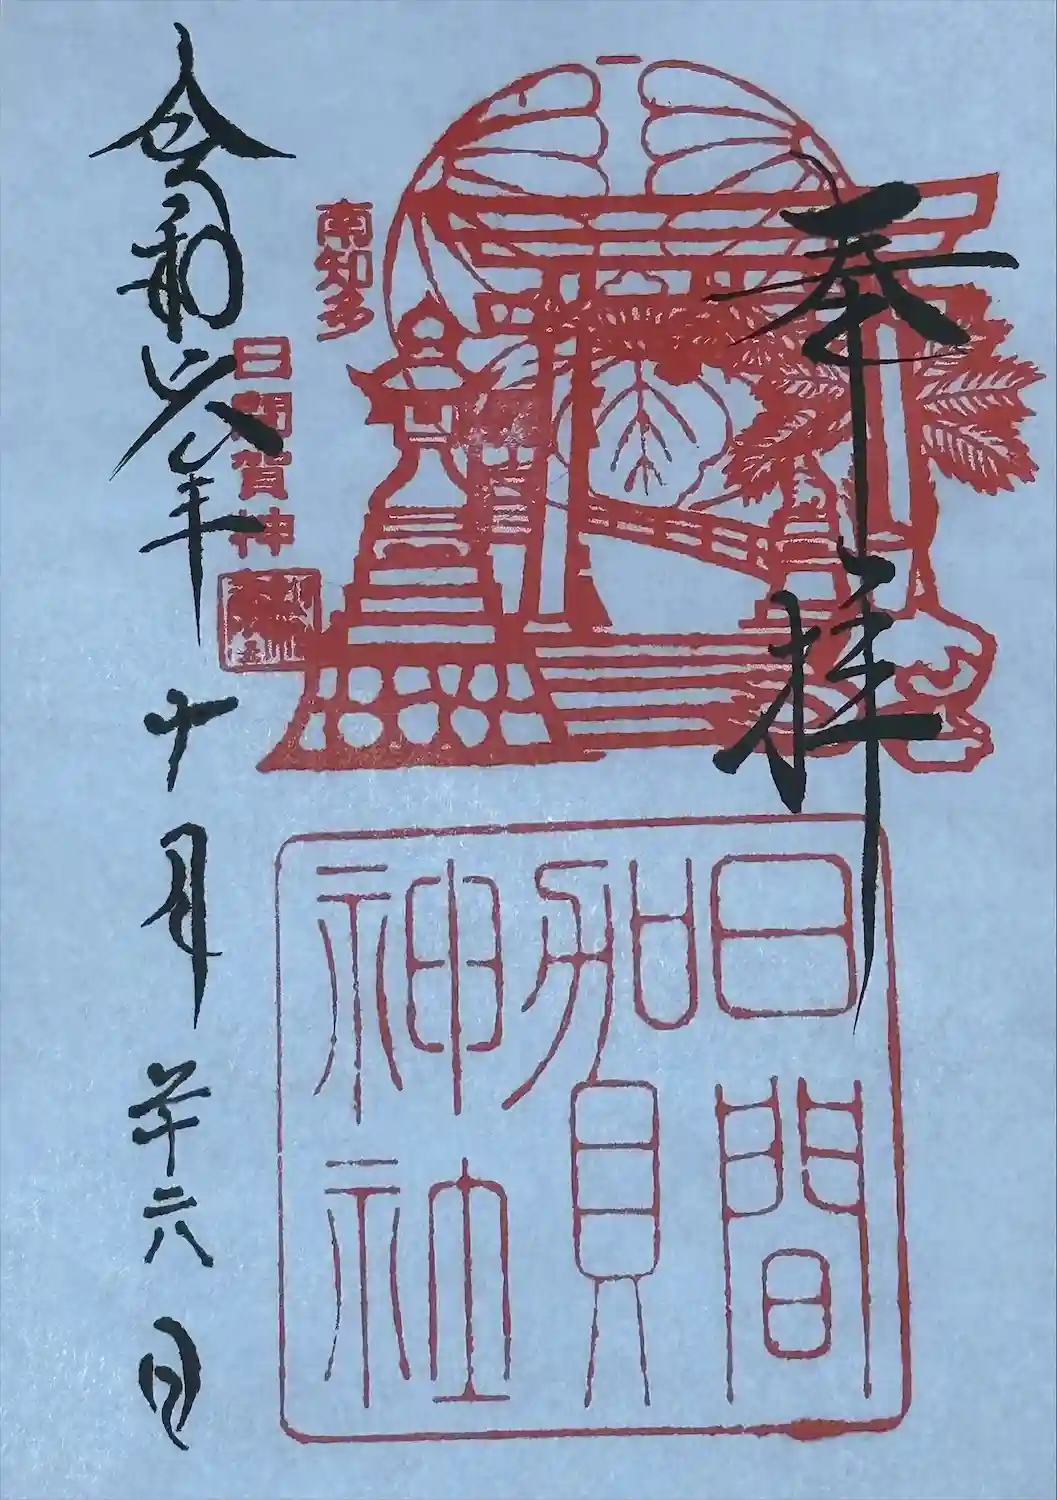 奉拝
南知多
日間賀神社
日間賀神社
令和六年十月廿六日